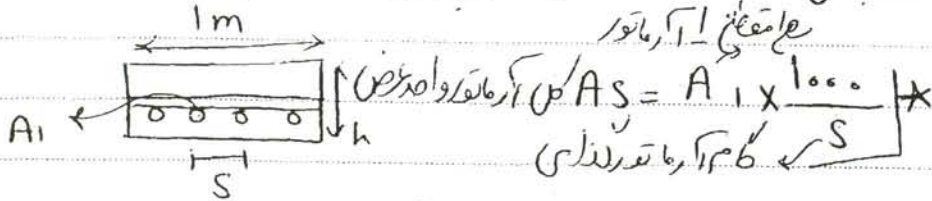 1m
سطح مقطع 1 آرماتور
A1
h
کل آرماتور واحد عرض As = A1 × 1000/S *
S
گام آرماتورگذاری